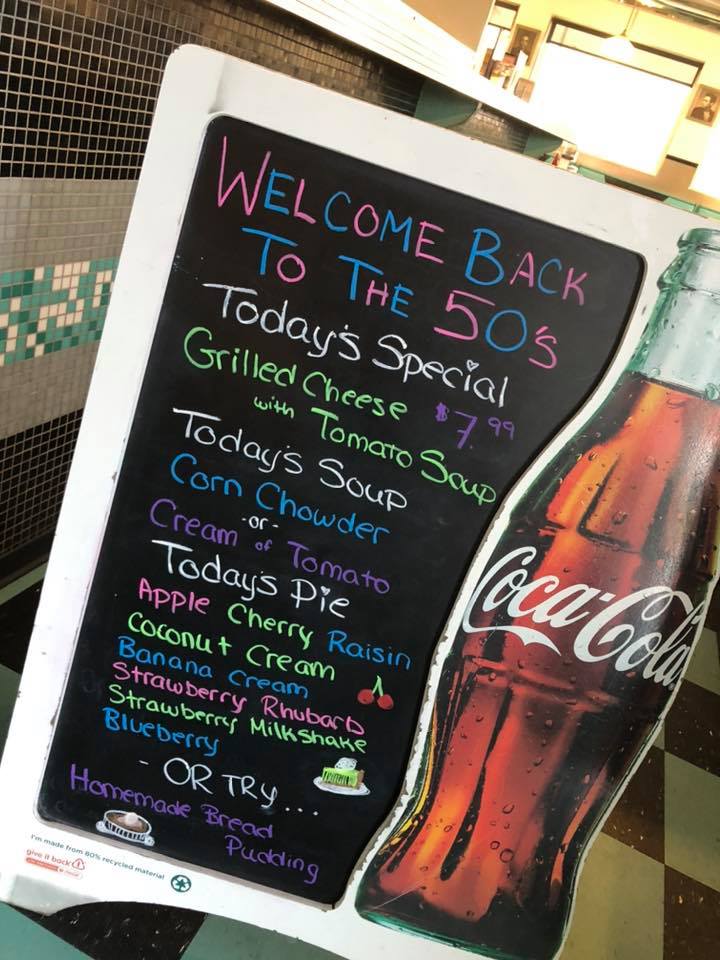 WELCOME BACK
TO THE 50's
Today's Special
Grilled Cheese $7.99
with Tomato Soup
Today's Soup
Corn Chowder
-or-
Cream of Tomato
Today's Pie
Apple Cherry Raisin
Coconut Cream
Banana Cream
Strawberry Rhubarb
Strawberry Milkshake
Blueberry
- OR TRY...
Homemade Bread
Pudding
Coca-Cola
I'm made from 80% recycled material
give it back